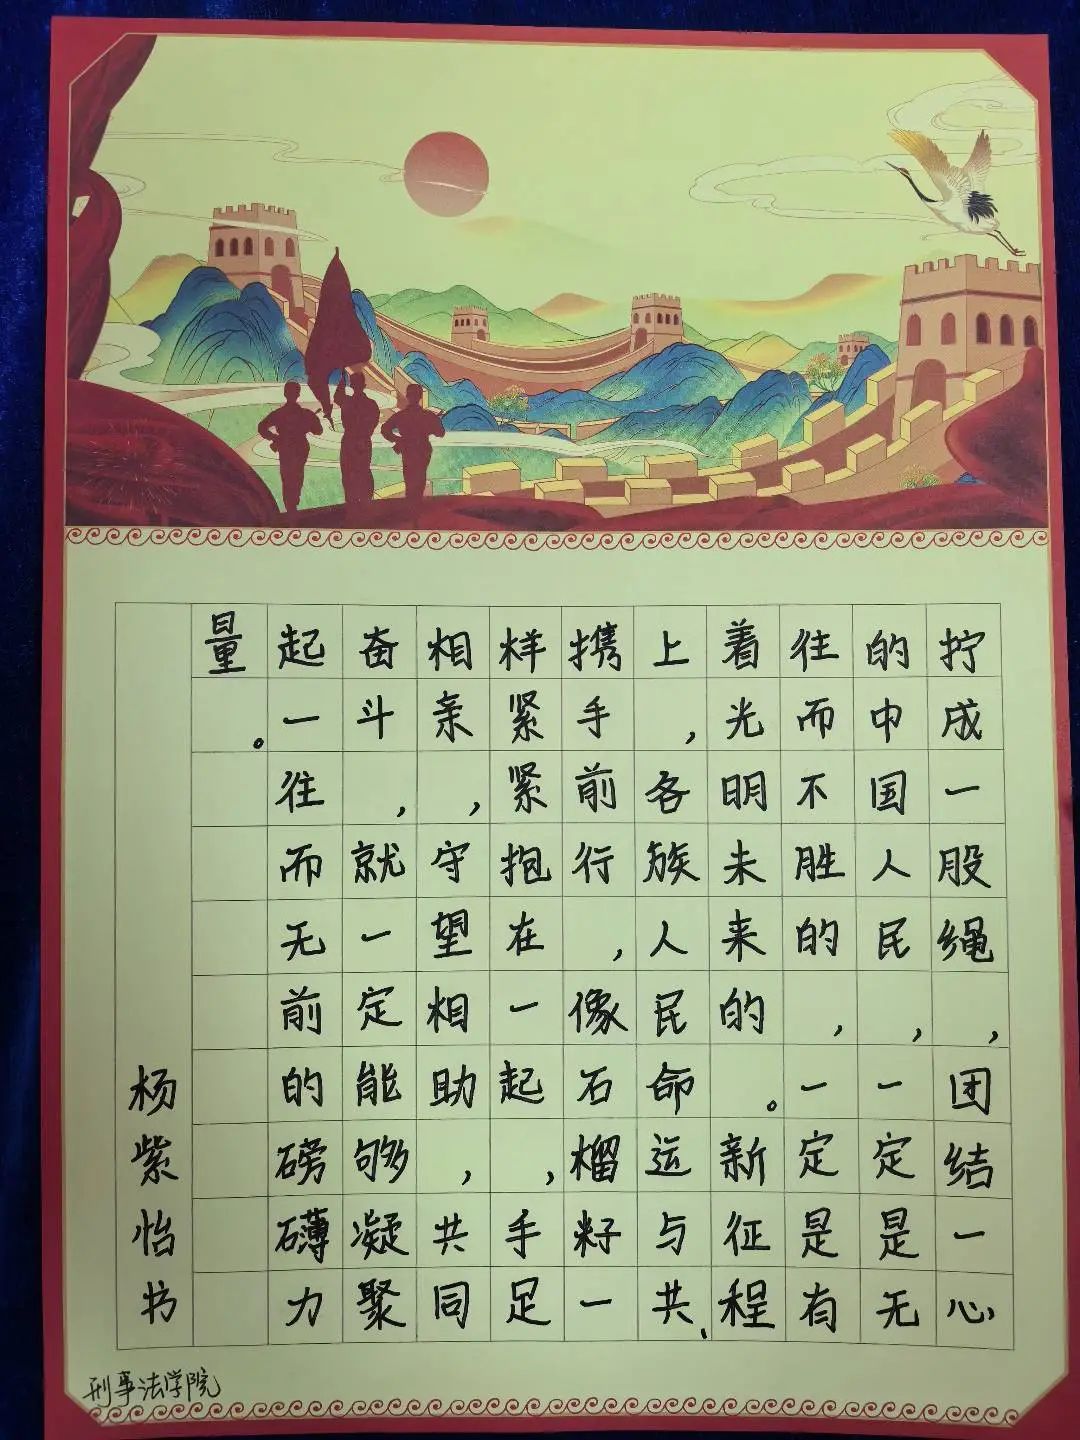 拧成一股绳，团结一心
的中国人民，一定是无
往而不胜的，一定是有
着光明未来的。新征程
上，各族人民命运与共、
携手前行，像石榴籽一
样紧紧抱在一起，手足
相亲，守望相助，共同
奋斗，就一定能够凝聚
起一往而无前的磅礴力
量。
杨紫怡书
刑事法学院